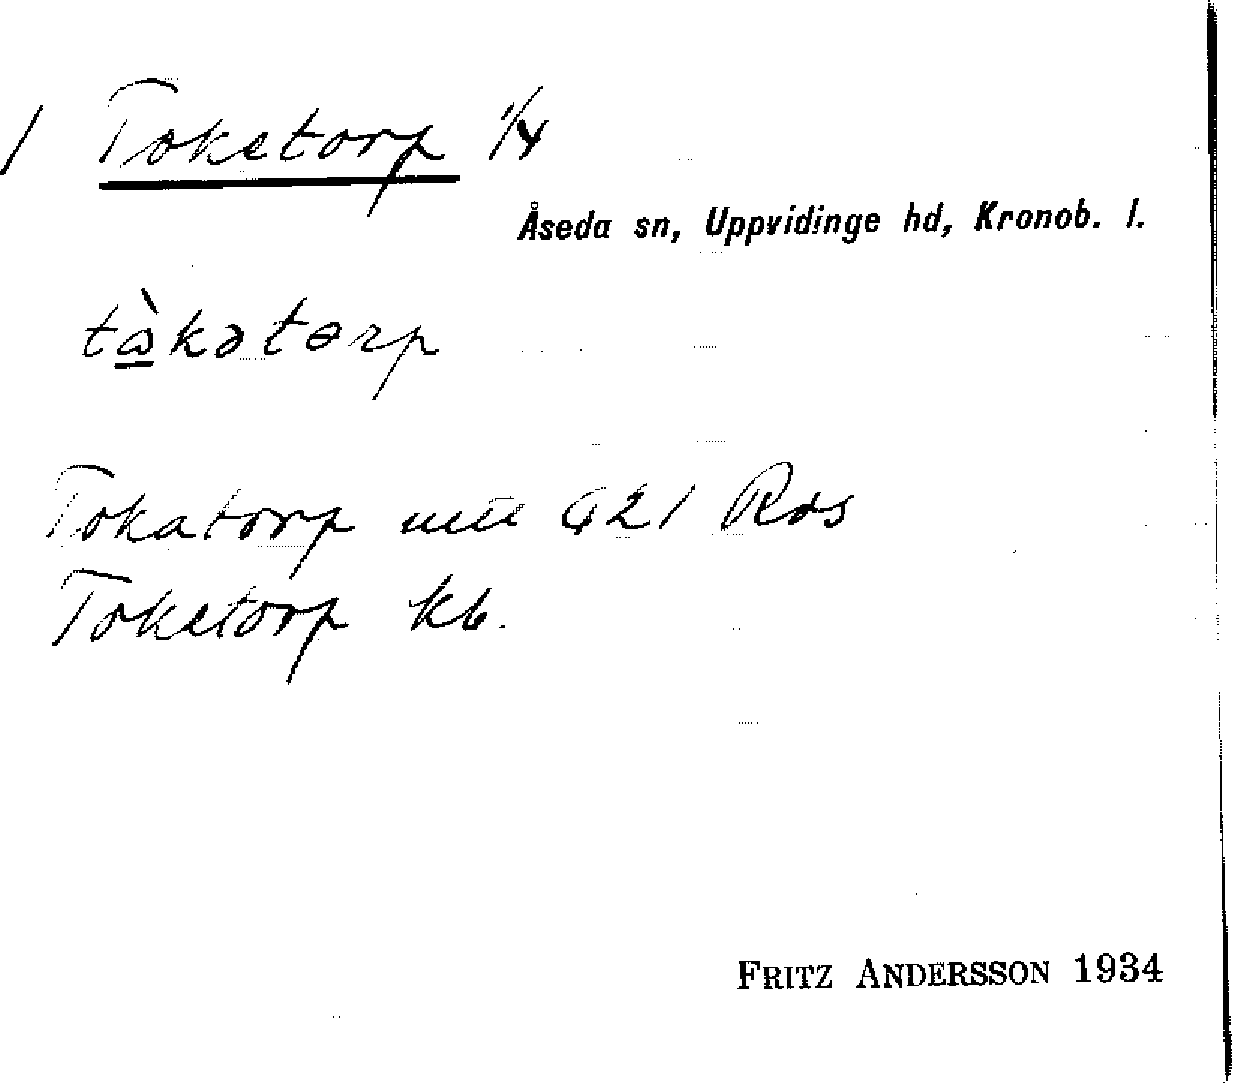 / Toketorp 1/4
Åseda sn, Uppvidinge hd, Kronob. l.
tàkətorp
Tokatorp 421 Ros
Toketorp kb.
FRITZ ANDERSSON 1934